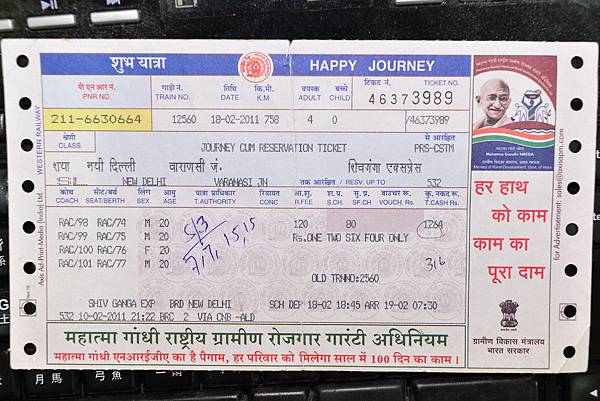 शुभ यात्रा HAPPY JOURNEY
पी एन आर नं. गाड़ी नं. तिथि कि.मी. वयस्क बच्चे टिकट नं. TICKET NO.
PNR NO. TRAIN NO. DATE K.M ADULT CHILD 46373989
211-6630664 12560 18-02-2011 758 4 0 /46373989
श्रेणी से आरक्षित
CLASS JOURNEY CUM RESERVATION TICKET PRS-CSTM
शया नयी दिल्ली वाराणसी जं. शिवगंगा एक्सप्रेस
NEW DELHI VARANASI JN तक आरक्षित / RESV. UP TO 532
कोच सीट/बर्थ लिंग आयु यात्रा प्राधिकार रियायत आ.शु. सु.प्र. वाउचर रू. कु. नकद रू.
COACH SEAT/BERTH SEX AGE T.AUTHORITY CONC. R.FEE S.CH. SF.CH VOUCH. Rs. T.CASH Rs.
RAC/98 RAC/74 M 20 120 80 1264
RAC/99 RAC/75 M 20 Rs.ONE TWO SIX FOUR ONLY
RAC/100 RAC/76 F 20
RAC/101 RAC/77 M 20
S/3
7,7,15,15
316
OLD TRNNO:2560
SHIV GANGA EXP BRD NEW DELHI SCH DEP 18-02 18:45 ARR 19-02 07:30
532 10-02-2011 21:22 BRC 2 VIA CNB -ALD
महात्मा गांधी राष्ट्रीय ग्रामीण रोजगार गारंटी अधिनियम
महात्मा गांधी एनआरईजीए का है पैगाम, हर परिवार को मिलेगा साल में 100 दिन का काम।
WESTERN RAILWAY
Axis Ad-Print-Media (India) Ltd.
Mahatma Gandhi NREGA
Ministry of Rural Development, Govt. of India
हर हाथ
को काम
काम का
पूरा दाम
ग्रामीण विकास मंत्रालय
भारत सरकार
月 馬 弓 魚